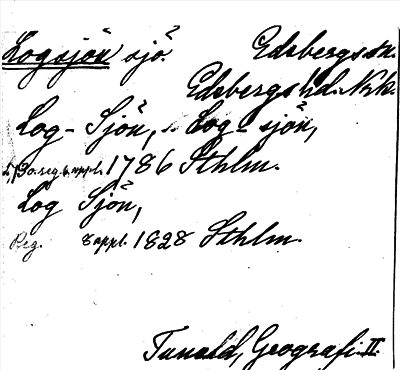 Logsjön sjö. Edsbergs sn.
Edsbergs hd. Nrk.
Log-Sjön, Log-sjön,
s. 73 o. reg. 6. uppl. 1786 Sthlm.
Log Sjön,
Reg. 8 uppl. 1828 Sthlm.
Tuneld, Geografi II.